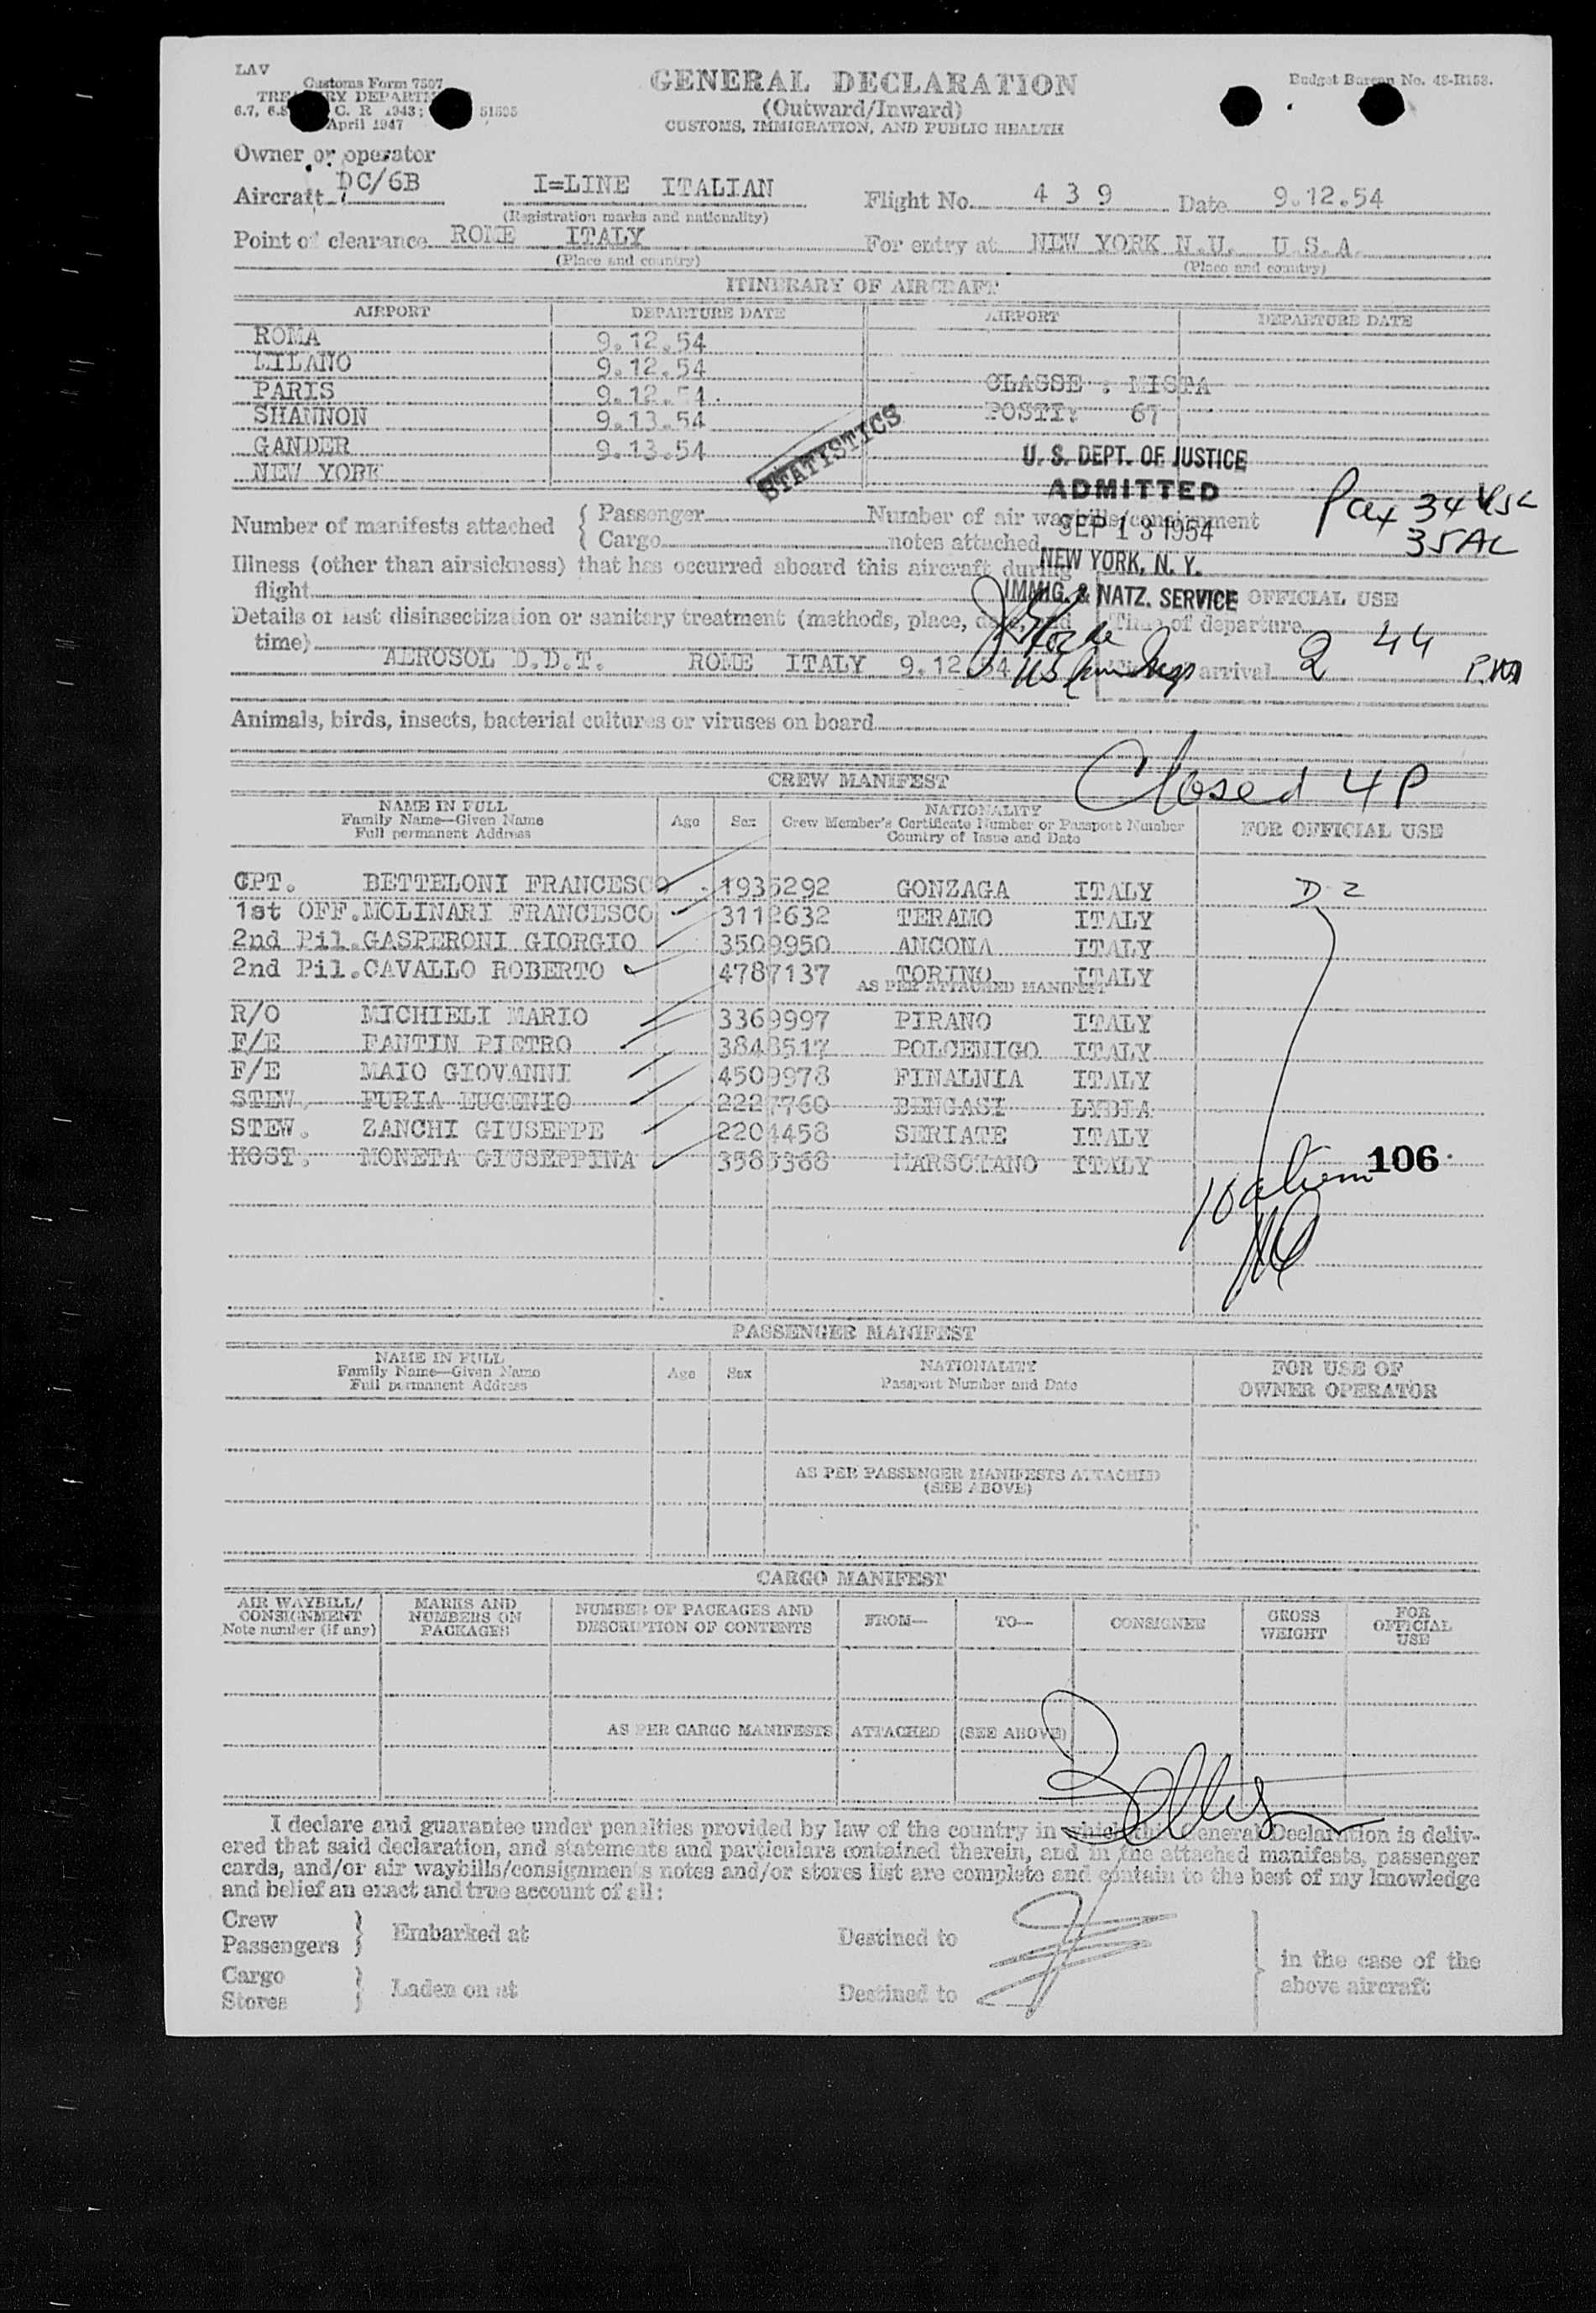 LAV
Customs Form 7507
TREASURY DEPARTMENT
6.7, 6.8 C. R 1943; 51695
April 1947
GENERAL DECLARATION
(Outward/Inward)
CUSTOMS, IMMIGRATION, AND PUBLIC HEALTH
Budget Bureau No. 48-R158.
Owner or operator
Aircraft DC/6B I=LINE ITALIAN Flight No. 4 3 9 Date 9.12.54
(Registration marks and nationality)
Point of clearance ROME ITALY For entry at NEW YORK N.U. U.S.A.
(Place and country) (Place and country)
ITINERARY OF AIRCRAFT
AIRPORT DEPARTURE DATE AIRPORT DEPARTURE DATE
ROMA 9.12.54
MILANO 9.12.54
PARIS 9.12.54. CLASSE : MISTA
SHANNON 9.13.54 POSTI: 67
GANDER 9.13.54
NEW YORK
STATISTICS
U. S. DEPT. OF JUSTICE
ADMITTED
SEP 13 1954
NEW YORK, N. Y.
IMMIG. & NATZ. SERVICE
Pax 34
35 AL
Number of manifests attached { Passenger Number of air waybills/consignment
Cargo notes attached
Illness (other than airsickness) that has occurred aboard this aircraft during
flight OFFICIAL USE
Details of last disinsectization or sanitary treatment (methods, place, date, and Time of departure
time)
AEROSOL D.D.T. ROME ITALY 9.12.54 arrival 2 44 P.M
Animals, birds, insects, bacterial cultures or viruses on board
Closed 4 P
CREW MANIFEST
NAME IN FULL
Family Name—Given Name
Full permanent Address
Age Sex
NATIONALITY
Crew Member's Certificate Number or Passport Number
Country of Issue and Date
FOR OFFICIAL USE
CPT. BETTELONI FRANCESCO 1935292 GONZAGA ITALY D-2
1st OFF. MOLINARI FRANCESCO 3112632 TERAMO ITALY
2nd Pil. GASPERONI GIORGIO 3509950 ANCONA ITALY
2nd Pil. CAVALLO ROBERTO 4787137 TORINO ITALY
AS PER ATTACHED MANIFEST
R/O MICHIELI MARIO 3369997 PIRANO ITALY
F/E FANTIN PIETRO 3848517 POLCENIGO ITALY
F/E MAIO GIOVANNI 4509978 FINALNIA ITALY
STEW. FURIA EUGENIO 2227760 BENGASI LYBIA
STEW. ZANCHI GIUSEPPE 2204458 SERIATE ITALY
HOST. MONETA GIUSEPPINA 3585368 MARSOTANO ITALY
106
10 aliens
PASSENGER MANIFEST
NAME IN FULL
Family Name—Given Name
Full permanent Address
Age Sex
NATIONALITY
Passport Number and Date
FOR USE OF
OWNER OPERATOR
AS PER PASSENGER MANIFESTS ATTACHED
(SEE ABOVE)
CARGO MANIFEST
AIR WAYBILL/
CONSIGNMENT
Note number (if any)
MARKS AND
NUMBERS ON
PACKAGES
NUMBER OF PACKAGES AND
DESCRIPTION OF CONTENTS
FROM— TO— CONSIGNEE
GROSS
WEIGHT
FOR
OFFICIAL
USE
AS PER CARGO MANIFESTS ATTACHED (SEE ABOVE)
I declare and guarantee under penalties provided by law of the country in which this General Declaration is deliv-
ered that said declaration, and statements and particulars contained therein, and in the attached manifests, passenger
cards, and/or air waybills/consignments notes and/or stores list are complete and contain to the best of my knowledge
and belief an exact and true account of all:
Crew
Passengers } Embarked at Destined to
Cargo
Stores } Laden on at Destined to
in the case of the
above aircraft